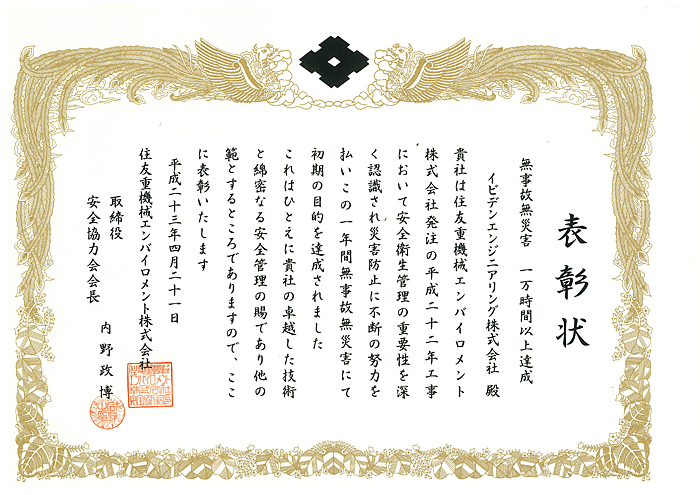 表彰状
無事故無災害 一万時間以上達成
イビデンエンジニアリング株式会社 殿
貴社は住友重機械エンバイロメント
株式会社発注の平成二十二年工事
において安全衛生管理の重要性を深
く認識され災害防止に不断の努力を
払いこの一年間無事故無災害にて
初期の目的を達成されました
これはひとえに貴社の卓越した技術
と綿密なる安全管理の賜であり他の
範とするところでありますので、ここ
に表彰いたします
平成二十三年四月二十一日
住友重機械エンバイロメント株式会社
取締役
安全協力会会長 内野政博